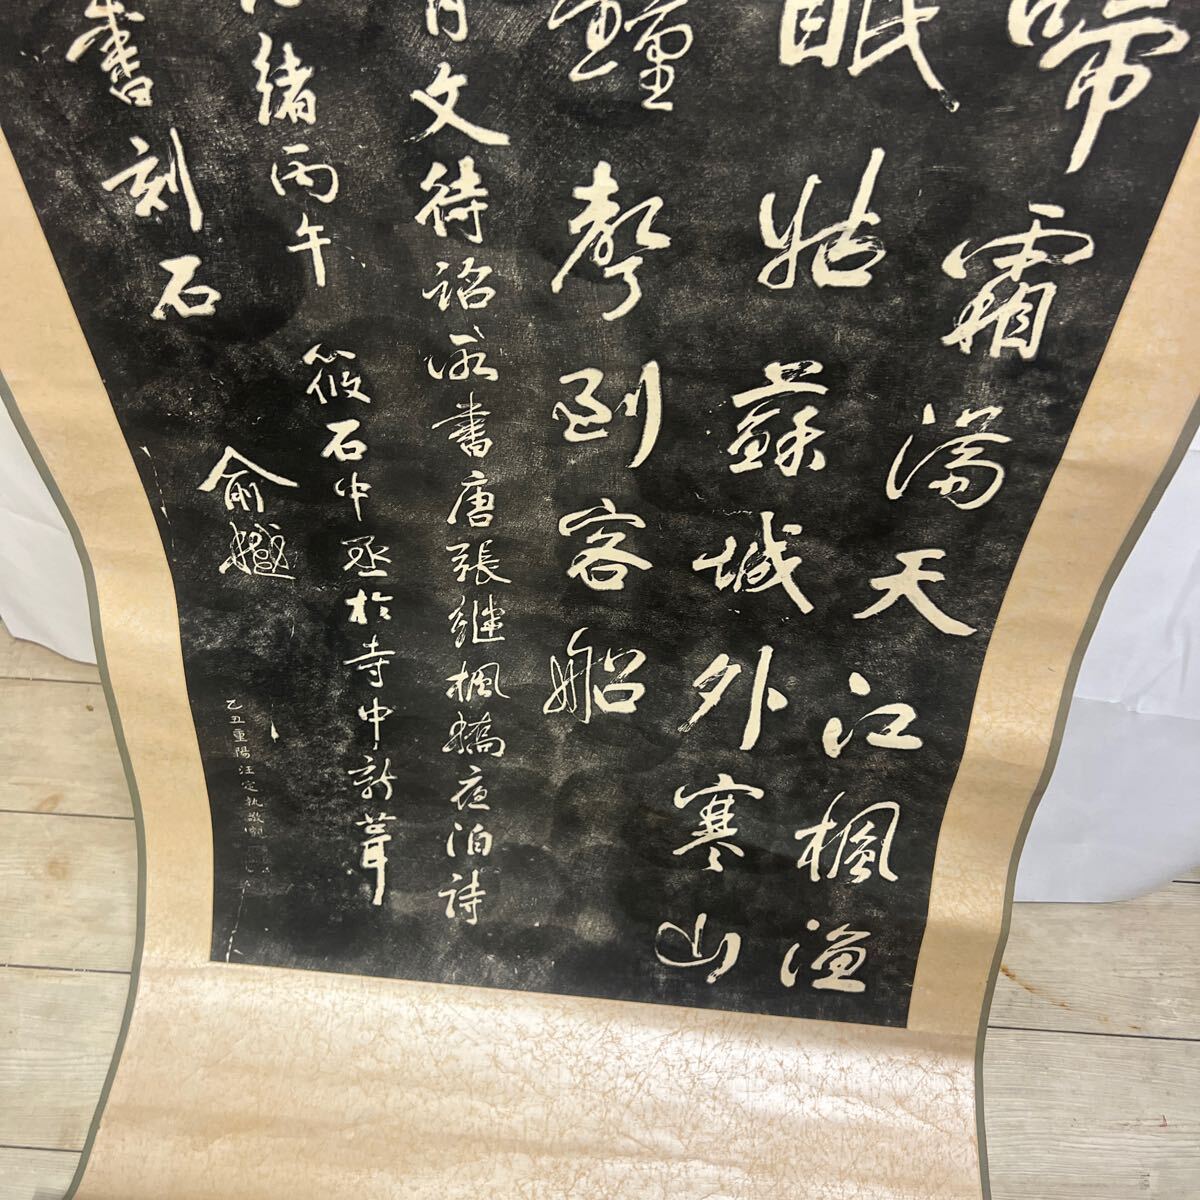 啼霜満天江楓漁
眠姑蘇城外寒山
鐘聲到客船
文待詔所書唐張継楓橋夜泊詩
緒丙午
筱石中丞於寺中新葺
書刻石
俞樾
乙丑重陽汪定執敬